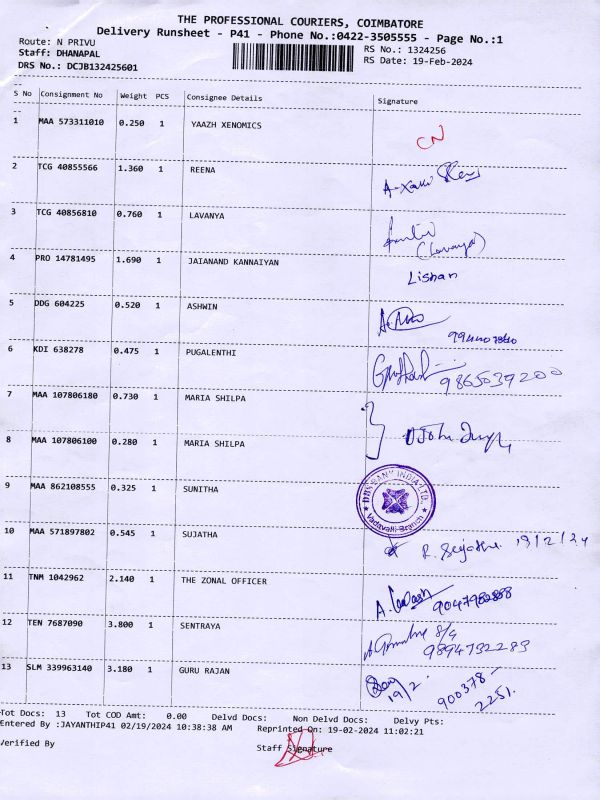 THE PROFESSIONAL COURIERS, COIMBATORE
Delivery Runsheet - P41 - Phone No.:0422-3505555 - Page No.:1
Route: N PRIVU
RS No.: 1324256
Staff: DHANAPAL
RS Date: 19-Feb-2024
DRS No.: DCJB132425601
S No Consignment No Weight PCS Consignee Details Signature
1 MAA 573311010 0.250 1 YAAZH XENOMICS CN
2 TCG 40855566 1.360 1 REENA
3 TCG 40856810 0.760 1 LAVANYA
(Lavanya)
4 PRO 14781495 1.690 1 JAIANAND KANNAIYAN Lishan
5 DDG 604225 0.520 1 ASHWIN
6 KDI 638278 0.475 1 PUGALENTHI 9865039200
7 MAA 107806180 0.730 1 MARIA SHILPA
8 MAA 107806100 0.280 1 MARIA SHILPA
9 MAA 862108555 0.325 1 SUNITHA
DBS BANK INDIA LTD.
Vadavalli Branch
10 MAA 571897802 0.545 1 SUJATHA R. Sujatha 19/2/24
11 TNM 1042962 2.140 1 THE ZONAL OFFICER
12 TEN 7687090 3.800 1 SENTRAYA
9894732283
13 SLM 339963140 3.180 1 GURU RAJAN
19/2. 900378-
2251.
Tot Docs: 13 Tot COD Amt: 0.00 Delvd Docs: Non Delvd Docs: Delvy Pts:
Entered By :JAYANTHIP41 02/19/2024 10:38:38 AM Reprinted On: 19-02-2024 11:02:21
Verified By
Staff Signature